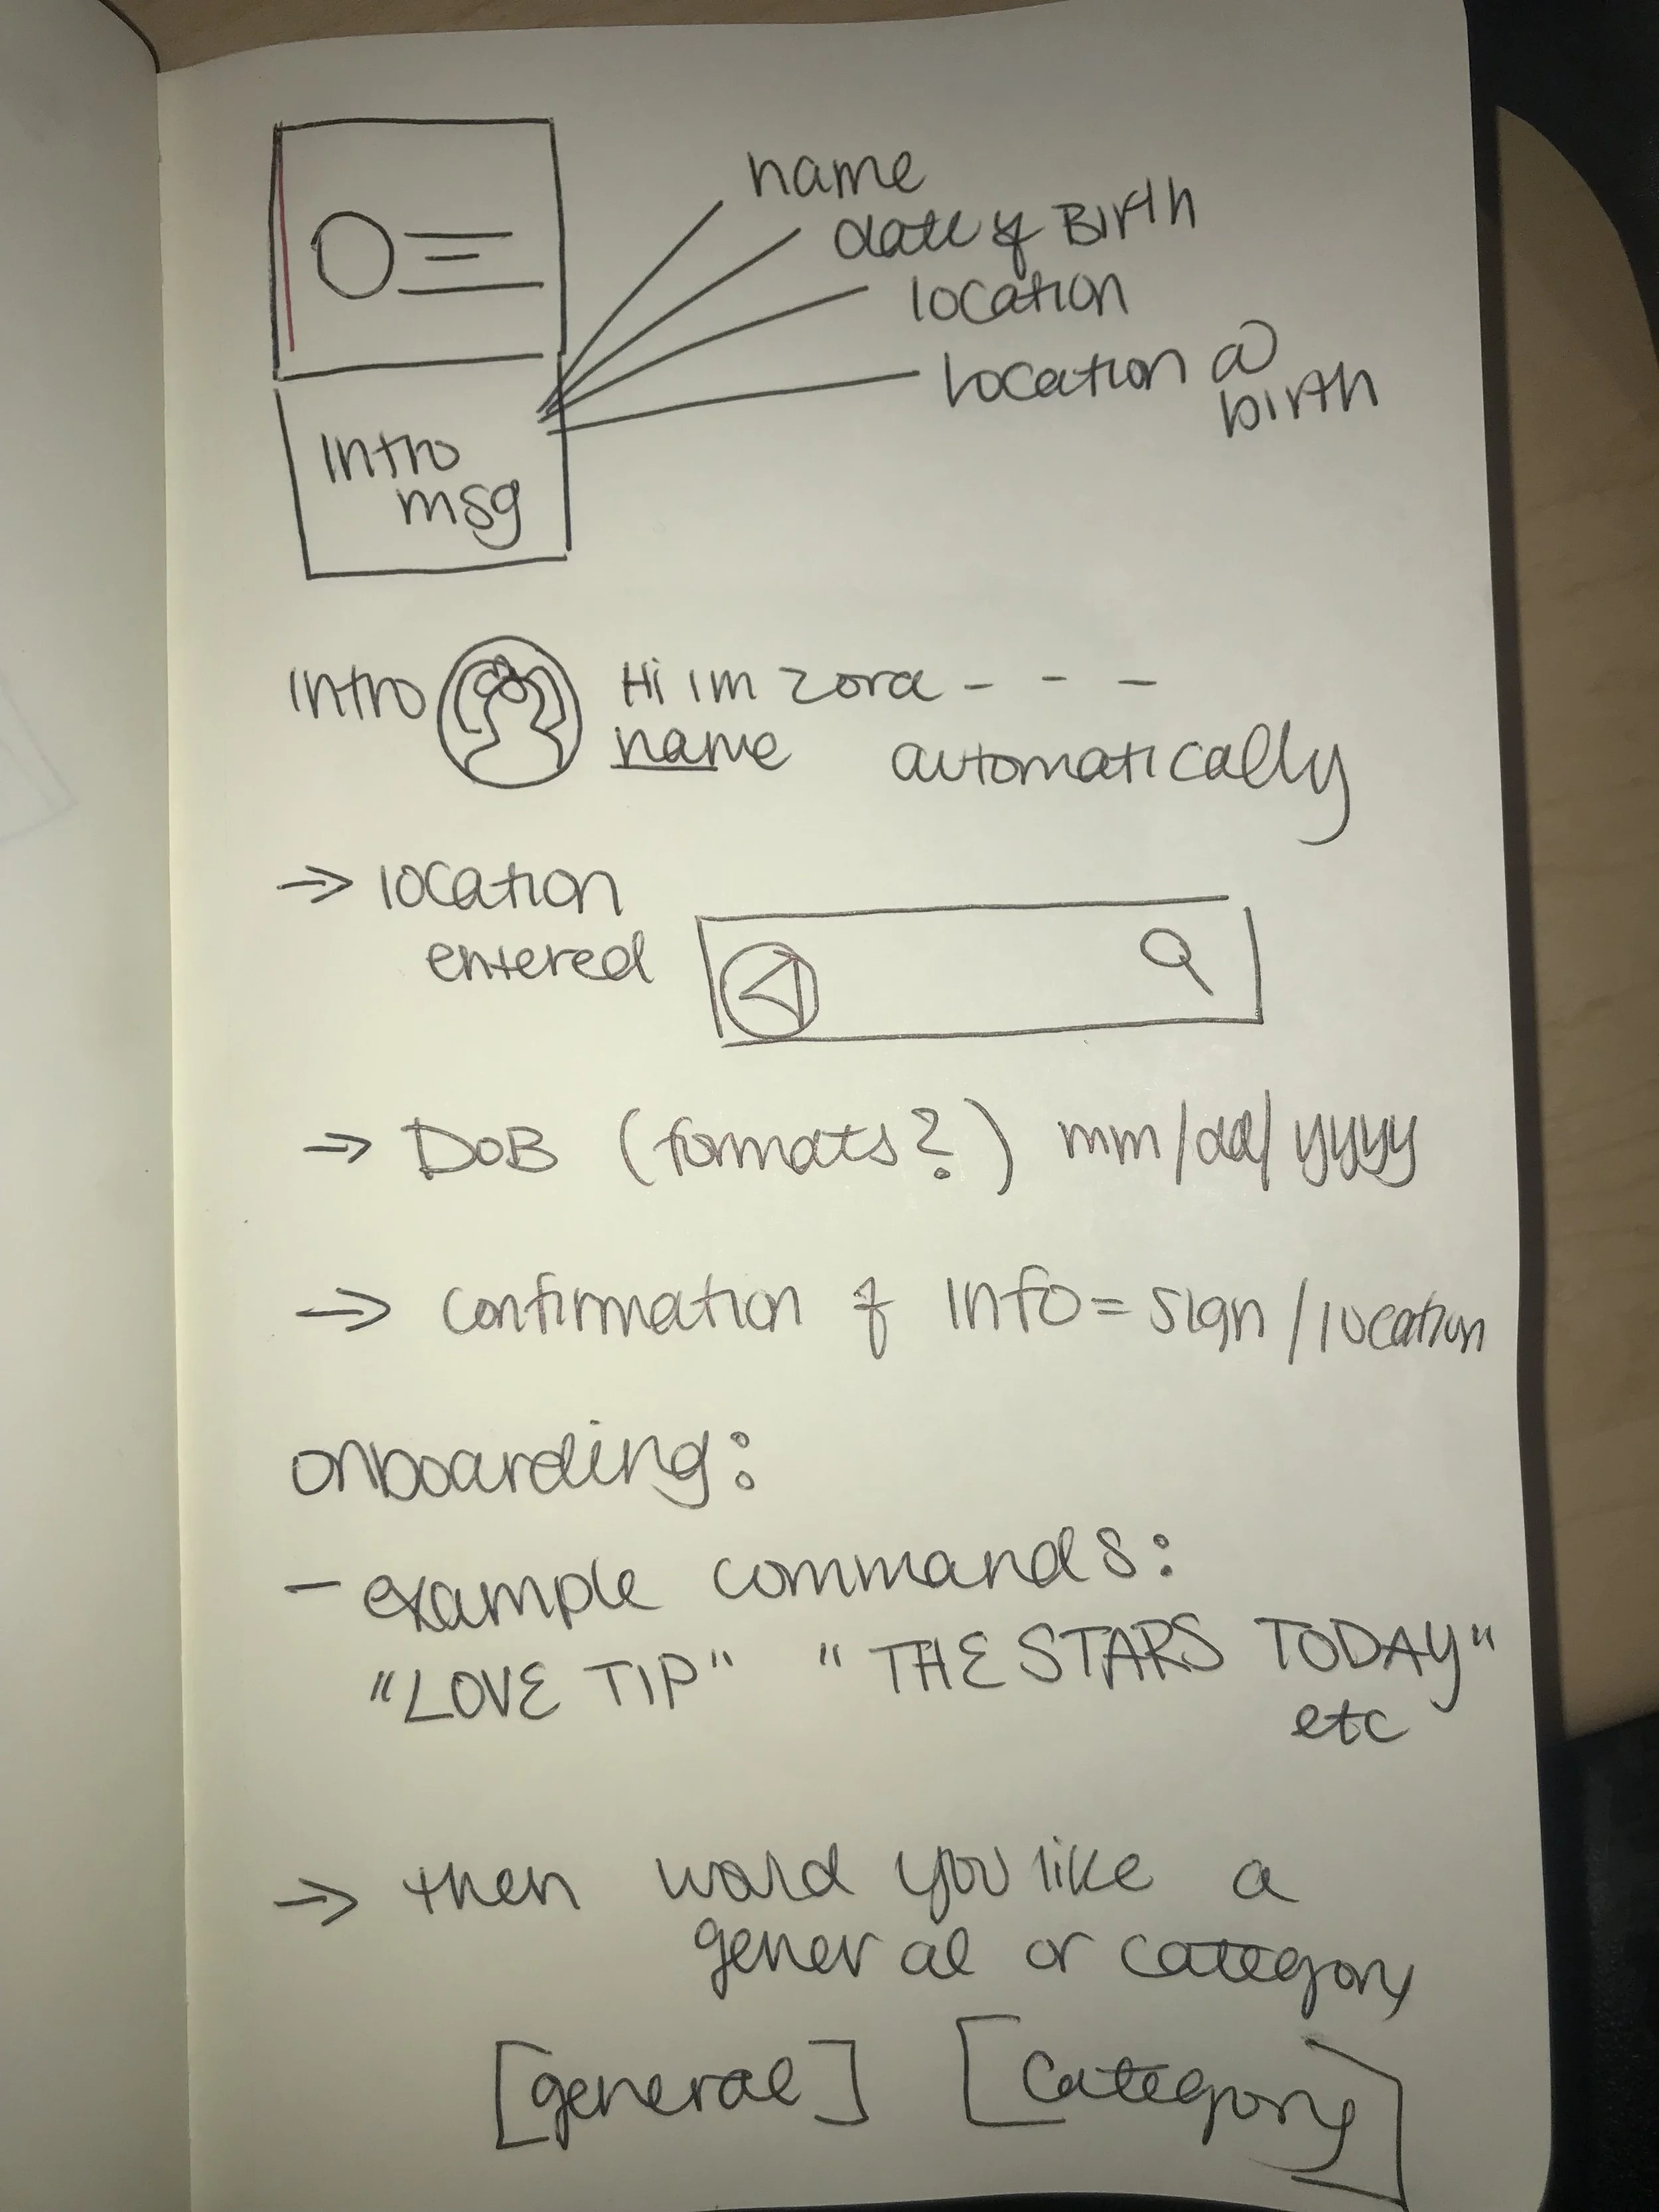 name
date of Birth
location
Location @
birth
Intro
msg
Intro Hi im zora - - -
name automatically
→ location
entered
→ DOB (formats?) mm/dd/yyyy
→ confirmation of info = sign/location
onboarding:
- example commands:
"LOVE TIP" "THE STARS TODAY"
etc
→ then would you like a
general or category
[general] [category]